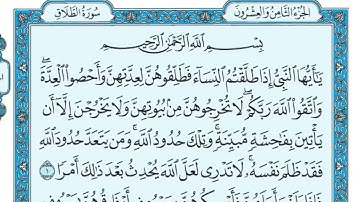 الجزء الثامن والعشرون
سورة الطلاق
بِسْمِ اللَّهِ الرَّحْمَٰنِ الرَّحِيمِ
يَٰٓأَيُّهَا ٱلنَّبِيُّ إِذَا طَلَّقْتُمُ ٱلنِّسَآءَ فَطَلِّقُوهُنَّ لِعِدَّتِهِنَّ وَأَحْصُوا۟ ٱلْعِدَّةَ ۖ
وَٱتَّقُوا۟ ٱللَّهَ رَبَّكُمْ ۖ لَا تُخْرِجُوهُنَّ مِنۢ بُيُوتِهِنَّ وَلَا يَخْرُجْنَ إِلَّآ أَن
يَأْتِينَ بِفَٰحِشَةٍ مُّبَيِّنَةٍ ۚ وَتِلْكَ حُدُودُ ٱللَّهِ ۚ وَمَن يَتَعَدَّ حُدُودَ ٱللَّهِ
فَقَدْ ظَلَمَ نَفْسَهُۥ ۚ لَا تَدْرِى لَعَلَّ ٱللَّهَ يُحْدِثُ بَعْدَ ذَٰلِكَ أَمْرًا ١